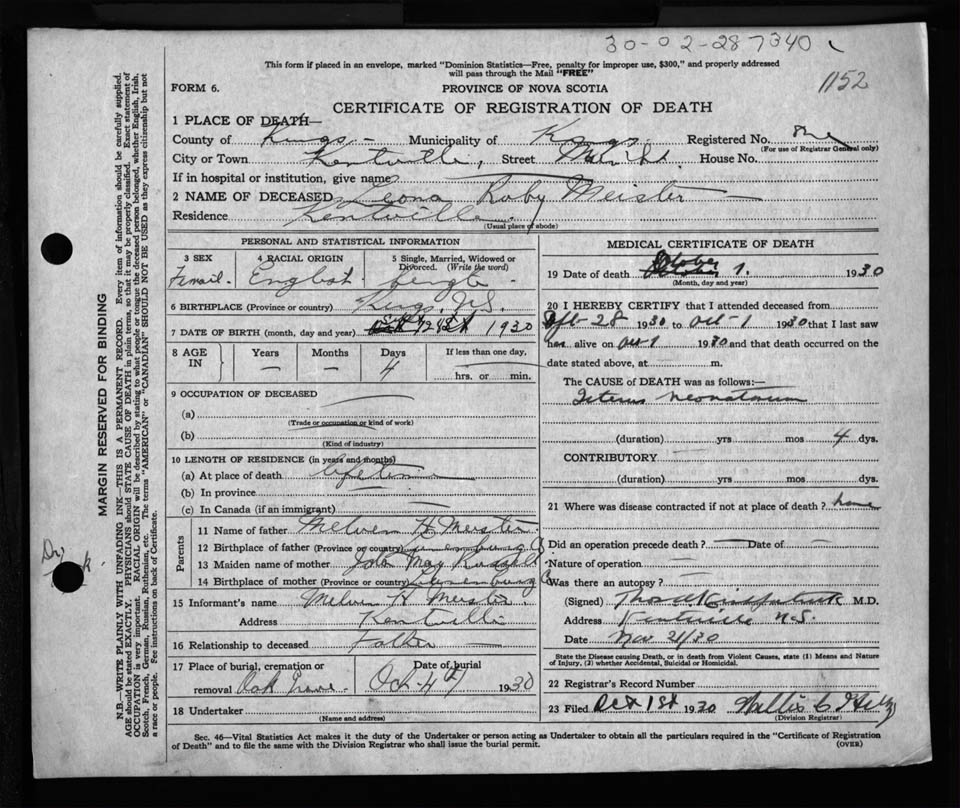 30-02-287340
1152
This form if placed in an envelope, marked "Dominion Statistics—Free, penalty for improper use, $300," and properly addressed
will pass through the Mail "FREE"
FORM 6.
PROVINCE OF NOVA SCOTIA
CERTIFICATE OF REGISTRATION OF DEATH
1 PLACE OF DEATH—
County of Kings Municipality of Kings Registered No.
(For use of Registrar General only)
City or Town Kentville, Street House No.
If in hospital or institution, give name
2 NAME OF DECEASED Leona Ruby Meister
Residence Kentville
(Usual place of abode)
PERSONAL AND STATISTICAL INFORMATION
3 SEX
4 RACIAL ORIGIN
5 Single, Married, Widowed or Divorced. (Write the word)
Femail. English
6 BIRTHPLACE (Province or country) Kings. N.S.
7 DATE OF BIRTH (month, day and year) 1930
8 AGE IN
Years — Months — Days 4
If less than one day,
hrs. or min.
9 OCCUPATION OF DECEASED
(a)
(Trade or occupation or kind of work)
(b)
(Kind of industry)
10 LENGTH OF RESIDENCE (in years and months)
(a) At place of death life time
(b) In province
(c) In Canada (if an immigrant)
Parents
11 Name of father Melven H Meister.
12 Birthplace of father (Province or country) Lunenburg Co
13 Maiden name of mother May Russell
14 Birthplace of mother (Province or country) Lunenburg Co
15 Informant's name Melven H Meister.
Address Kentville
16 Relationship to deceased Father
17 Place of burial, cremation or removal Oak Grove. Date of burial Oct 4th 1930
18 Undertaker
(Name and address)
MEDICAL CERTIFICATE OF DEATH
19 Date of death October 1. 1930
(Month, day and year)
20 I HEREBY CERTIFY that I attended deceased from
Sept-28 1930 to Oct-1 1930 that I last saw
her alive on Oct-1 1930 and that death occurred on the
date stated above, at m.
The CAUSE OF DEATH was as follows:—
Icterus Neonatorum
(duration) yrs mos 4 dys.
CONTRIBUTORY
(duration) yrs mos dys.
21 Where was disease contracted if not at place of death? home
Did an operation precede death? — Date of —
Nature of operation
Was there an autopsy?
(Signed) M.D.
Address Kentville N.S.
Date Nov 21/30
State the Disease causing Death, or in death from Violent Causes, state (1) Means and Nature of Injury, (2) whether Accidental, Suicidal or Homicidal.
22 Registrar's Record Number
23 Filed Oct 1st 1930
(Division Registrar)
Sec. 46—Vital Statistics Act makes it the duty of the Undertaker or person acting as Undertaker to obtain all the particulars required in the "Certificate of Registration
of Death" and to file the same with the Division Registrar who shall issue the burial permit.
(OVER)
MARGIN RESERVED FOR BINDING
N.B.—WRITE PLAINLY WITH UNFADING INK—THIS IS A PERMANENT RECORD. Every item of information should be carefully supplied.
AGE should be stated EXACTLY. PHYSICIANS should STATE CAUSE OF DEATH in plain terms, so that it may be properly classified. Exact statement of
OCCUPATION is very important. RACIAL ORIGIN will be described by stating to what people or tongue the deceased person belonged, whether English, Irish,
Scotch, French, German, Russian, Ruthenian, etc. The terms "AMERICAN" or "CANADIAN" SHOULD NOT BE USED as they express citizenship but not
a race or people. See instructions on back of Certificate.